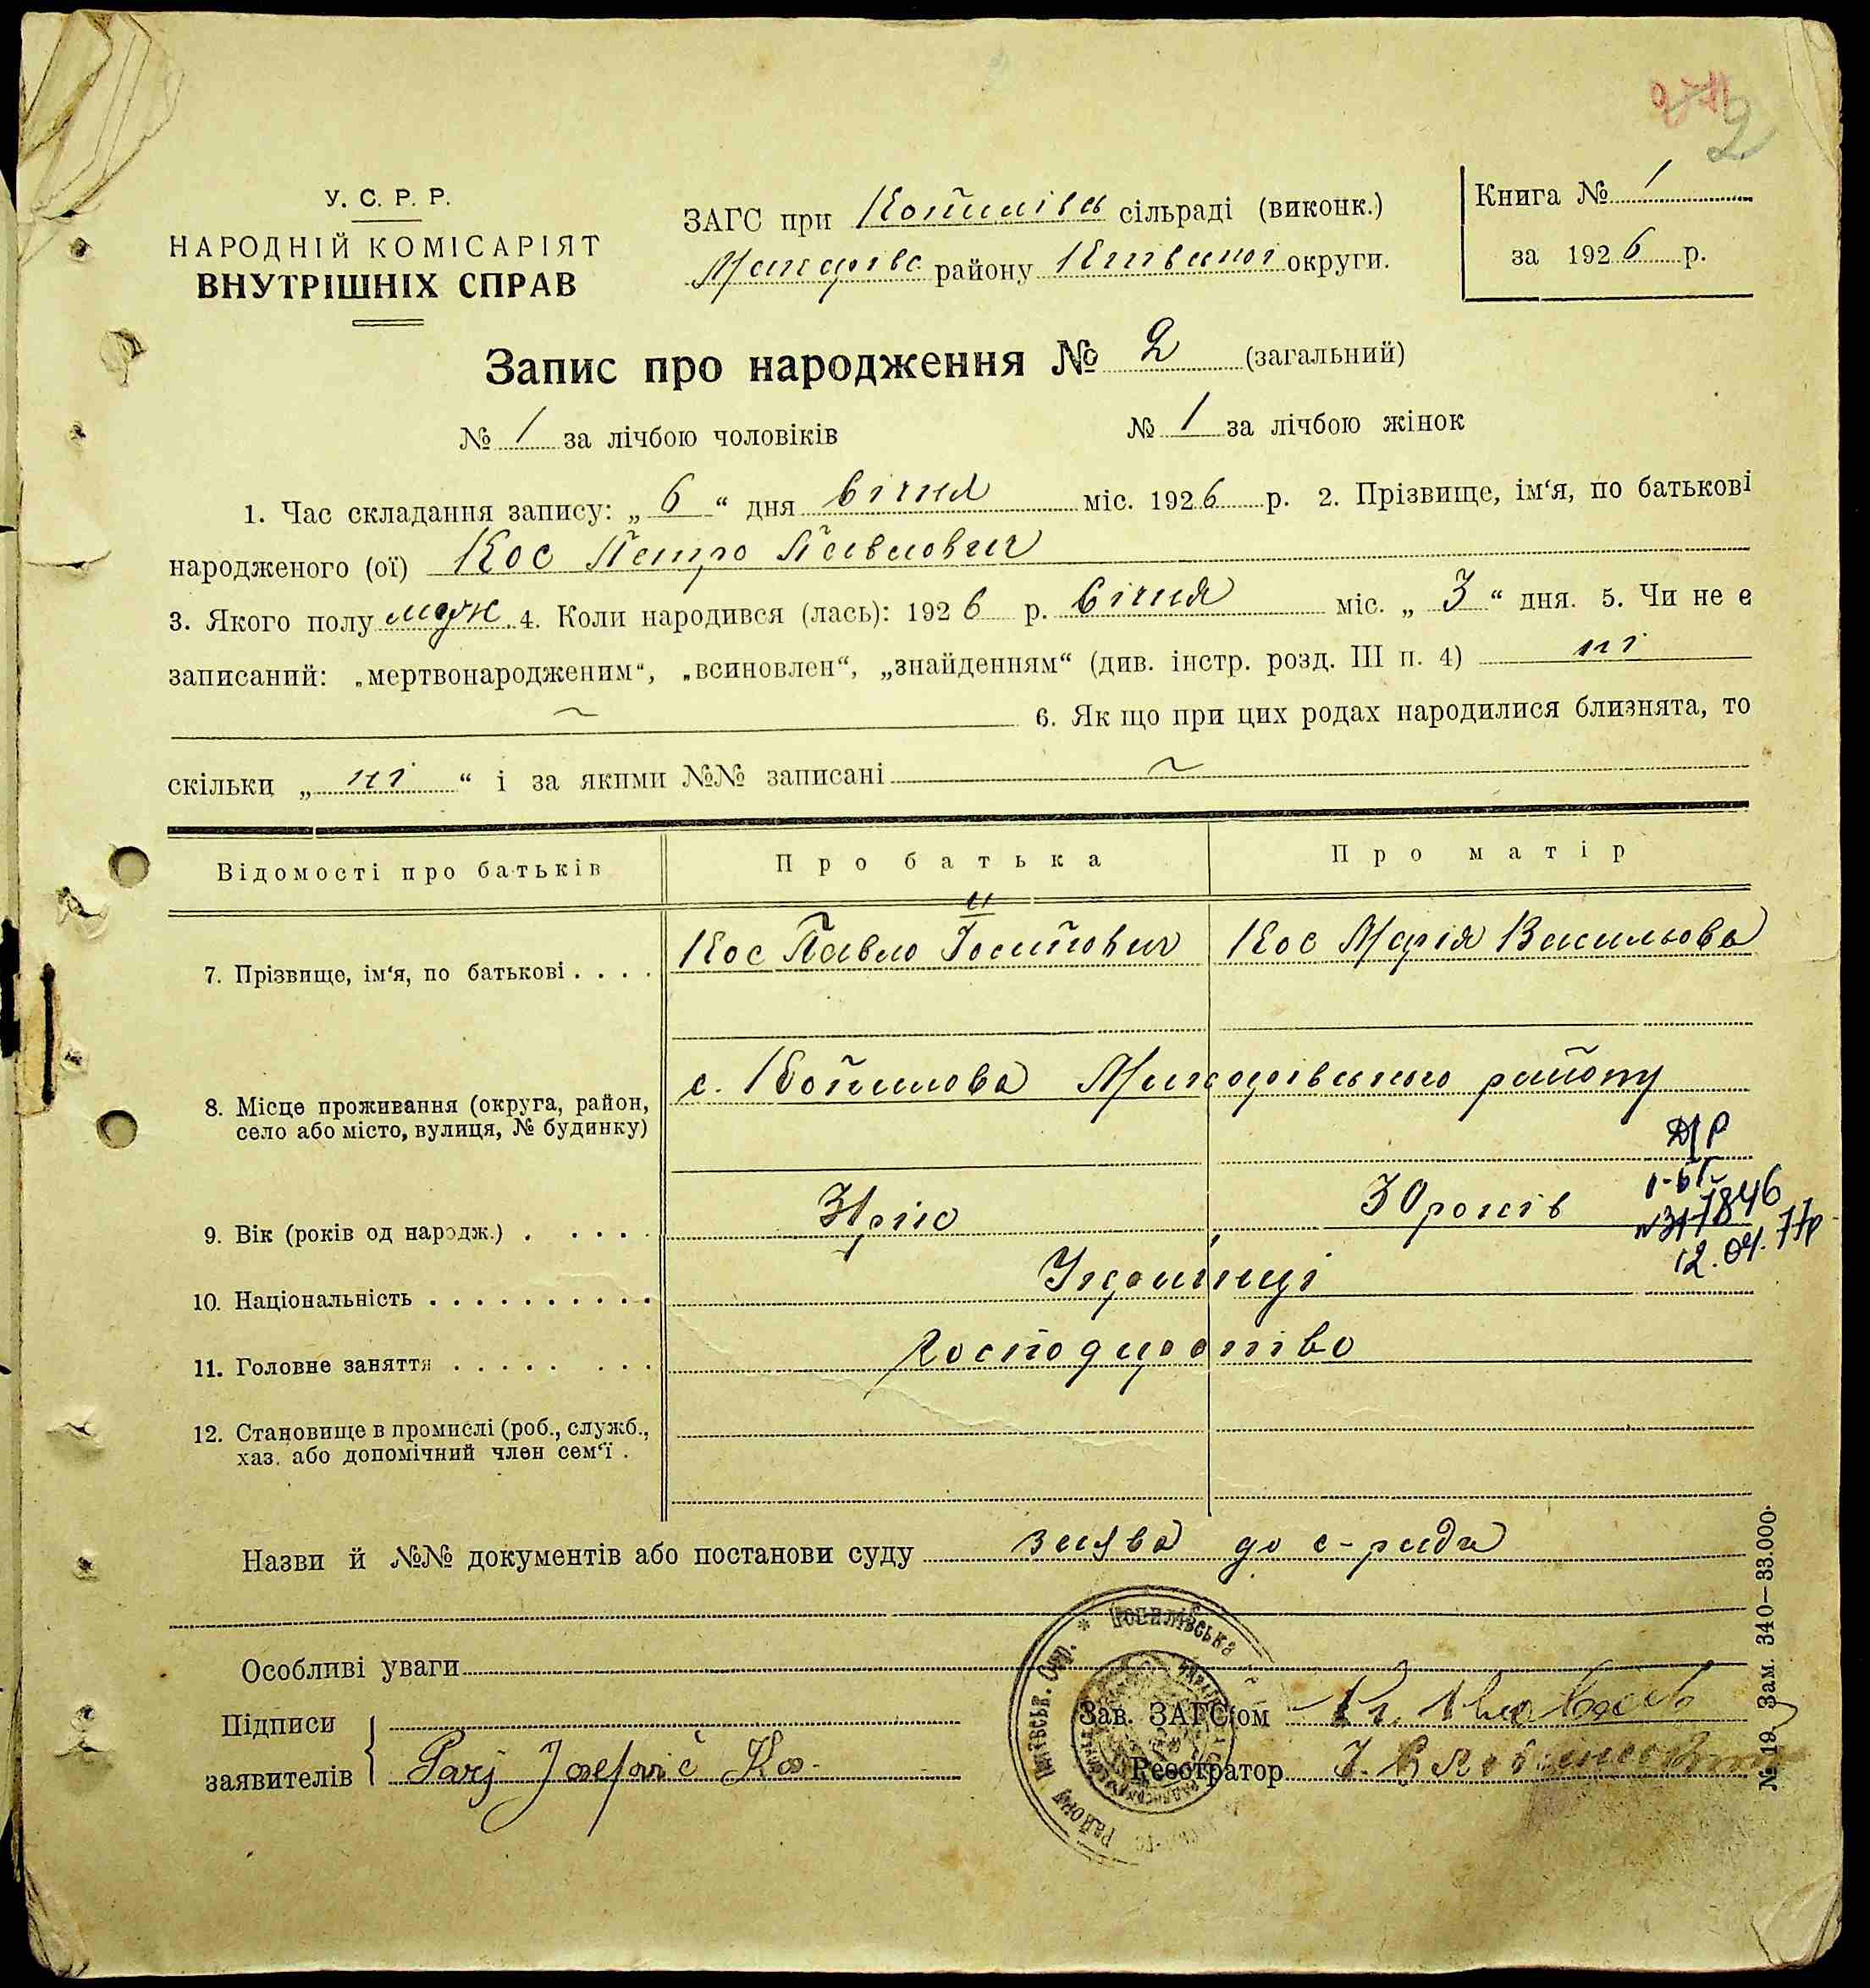 2
У. С. Р. Р.
НАРОДНІЙ КОМІСАРІЯТ
ВНУТРІШНІХ СПРАВ
ЗАГС при Копилівск сільраді (виконк.)
Макарівс. району Київської округи.
Книга № 1
за 1926 р.
Запис про народження № 2 (загальний)
№ 1 за лічбою чоловіків № 1 за лічбою жінок
1. Час складання запису: „ 6 “ дня січня міс. 1926 р. 2. Прізвище, ім‘я, по батькові
народженого (ої) Кос Петро Павлович
3. Якого полу муж. 4. Коли народився (лась): 1926 р. січня міс. „ 3 “ дня. 5. Чи не є
записаний: „мертвонародженим“, „всиновлен“, „знайденням“ (див. інстр. розд. III п. 4) ні
~ 6. Як що при цих родах народилися близнята, то
скільки „ ні “ і за якими №№ записані ~
Відомості про батьків Про батька Про матір
7. Прізвище, ім‘я, по батькові . . . . Кос Павло Іосипович Кос Марія Васильова
8. Місце проживання (округа, район,
село або місто, вулиця, № будинку)
с. Копилова Макарівського району
9. Вік (років од народж.) . . . . . 31 рік 30 років
12.04.77р
10. Національність . . . . . . . . . . Українці
11. Головне заняття . . . . . . . . Господарство
12. Становище в промислі (роб., служб.,
хаз. або допомічний член сем‘ї .
Назви й №№ документів або постанови суду заява до с-ради
Особливі уваги
Підписи
заявителів
Josefovič Kos
Зав. ЗАГС‘ом
Реєстратор
Копилівська
району Київськ. Окр.
№ 19 Зам. 340—33.000.